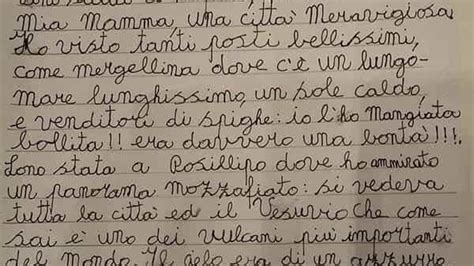 mia mamma, una città meravigiosa
Ho visto tanti posti bellissimi,
come mergellina dove c'è un lungo-
mare lunghissimo, un sole caldo,
e venditori di spighe: io l'ho mangiata
bollita!! era davvero una bontà!!!.
Sono stata a Posillipo dove ho ammirato
un panorama mozzafiato: si vedeva
tutta la città ed il Vesuvio che come
sai è uno dei vulcani più importanti
del mondo. Il cielo era di un azzurro